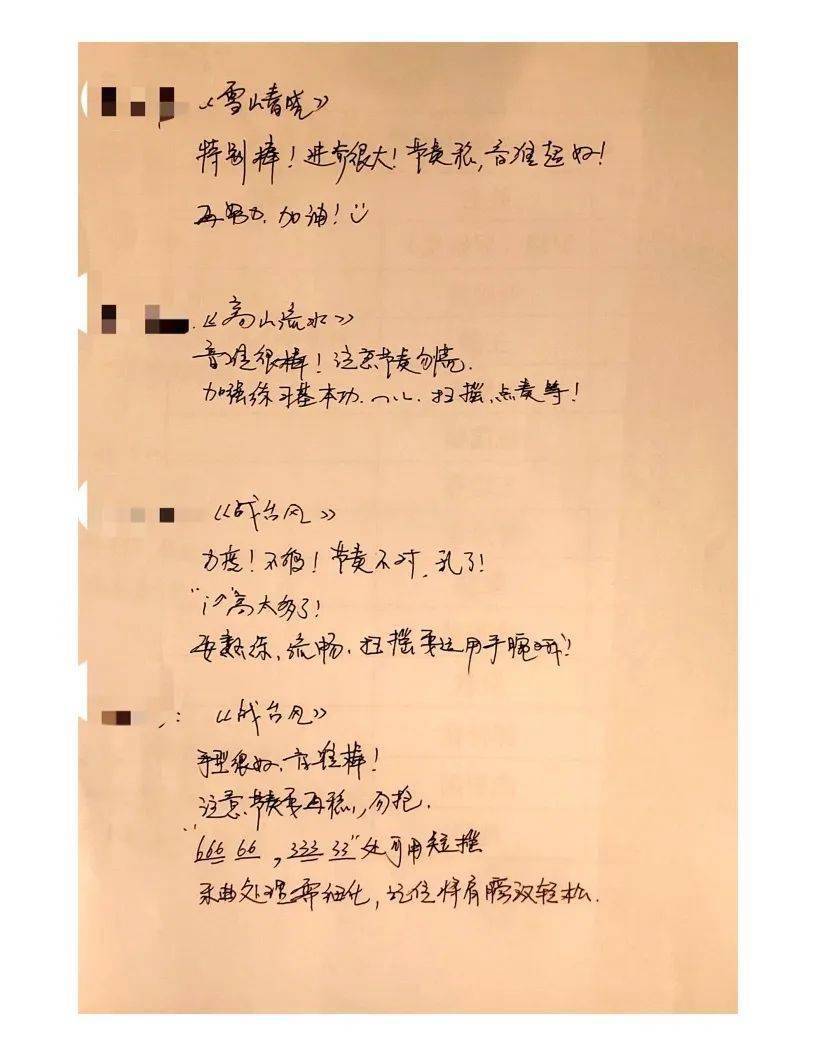 《雪山春晓》
特别棒！进步很大！节奏稳，音准超好！
再努力，加油！
《高山流水》
音准很棒！注意节奏勿高.
加强练习基本功. 扫摇、点奏等！
《战台风》
力度！不够！节奏不对，乱了！
高太多了！
要熟练，流畅，扫摇要运用手腕哦！
《战台风》
手型很好、音准棒！
注意节奏要再稳，勿抢.
"666 66 , 333 33"处可用短摇
乐曲处理要细化，记住将肩膀放轻松.